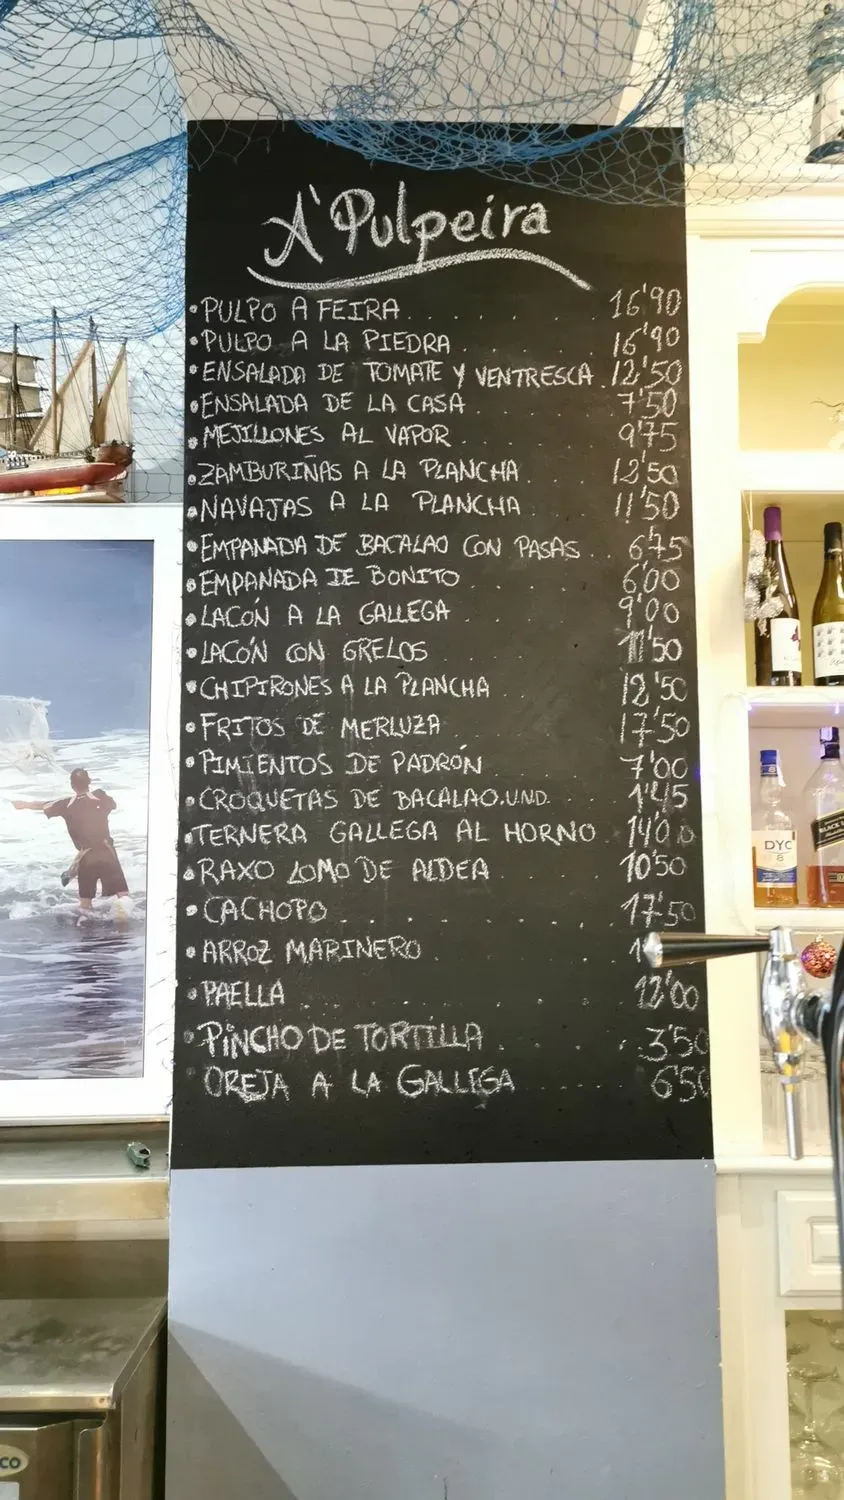 A'Pulpeira
• PULPO A FEIRA . . . . . . 16'90
• PULPO A LA PIEDRA . . . . 16'90
• ENSALADA DE TOMATE Y VENTRESCA . 12'50
• ENSALADA DE LA CASA . . . . 7'50
• MEJILLONES AL VAPOR . . . . 9'75
• ZAMBURIÑAS A LA PLANCHA . . . 12'50
• NAVAJAS A LA PLANCHA . . . 11'50
• EMPANADA DE BACALAO CON PASAS . . 6'75
• EMPANADA DE BONITO . . . . 6'00
• LACÓN A LA GALLEGA . . . . 9'00
• LACÓN CON GRELOS . . . . 11'50
• CHIPIRONES A LA PLANCHA . . . 12'50
• FRITOS DE MERLUZA . . . . 17'50
• PIMIENTOS DE PADRÓN . . . . 7'00
• CROQUETAS DE BACALAO.UND. . . . 1'45
• TERNERA GALLEGA AL HORNO . . 14'00
• RAXO LOMO DE ALDEA . . . . 10'50
• CACHOPO . . . . . . . 17'50
• ARROZ MARINERO . . . .
• PAELLA . . . . . . . 12'00
• PINCHO DE TORTILLA . . . . 3'50
OREJA A LA GALLEGA . . . . . 6'50
DYC
8
BLACK
CO